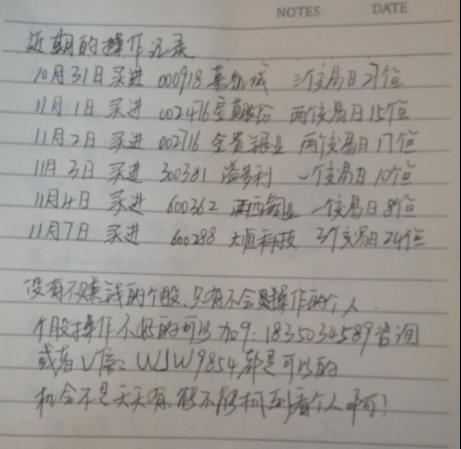 NOTES DATE
近期的操作记录
10月31日买进 000918 嘉凯城 三个交易日27个点
11月1日买进 002476 宝莫股份 两个交易日15个点
11月2日买进 002716 金贵银业 两个交易日17个点
11月3日买进 300381 溢多利 一个交易日10个点
11月4日买进 600362 江西铜业 一个交易日8个点
11月7日买进 600288 大恒科技 3个交易日24个点
没有不赚钱的个股,只有不会操作的个人
个股操作不好的可以加q:1835034589咨询
或者V信:WJW9854都是可以的
机会不是天天有,能不能抓到看个人